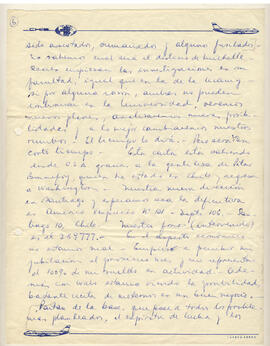 6
sido asesorados, sumariados y algunos fusilados).
No sabemos cual será el destino de Michelle
Recién empiezan las investigaciones en su
facultad, igual que en la de la mamy.
Si por alguna razón, ambas no pueden
continuar en la Universidad, veremos
nuevos planes, analizaremos nuevas posibi-
lidades y a lo mejor cambiaremos nuestros
rumbos. El tiempo lo dirá. Por
corto tiempo. Esta carta está saliendo
desde USA gracias a la gentileza de Peter
quien ha estado en Chile y regresa
a Washington. Nuestra nueva dirección
en Santiago y esperamos sea la definitiva
es Américo Vespucio N° 121 - Depto 106 -
10 Chile. Nuestro fono (anteriormente)
es el 249777. El aspecto económico
no estamos mal. Empiezo a percibir mi
jubilación el próximo mes, y me representa
el 100% de mi sueldo en actividad. Ade-
más con Walo estamos viendo la posibilidad
bastante cierta de meternos en un buen negocio.
Partan de la base, que pese a todos los proble-
mas planteados, el espíritu de lucha y los